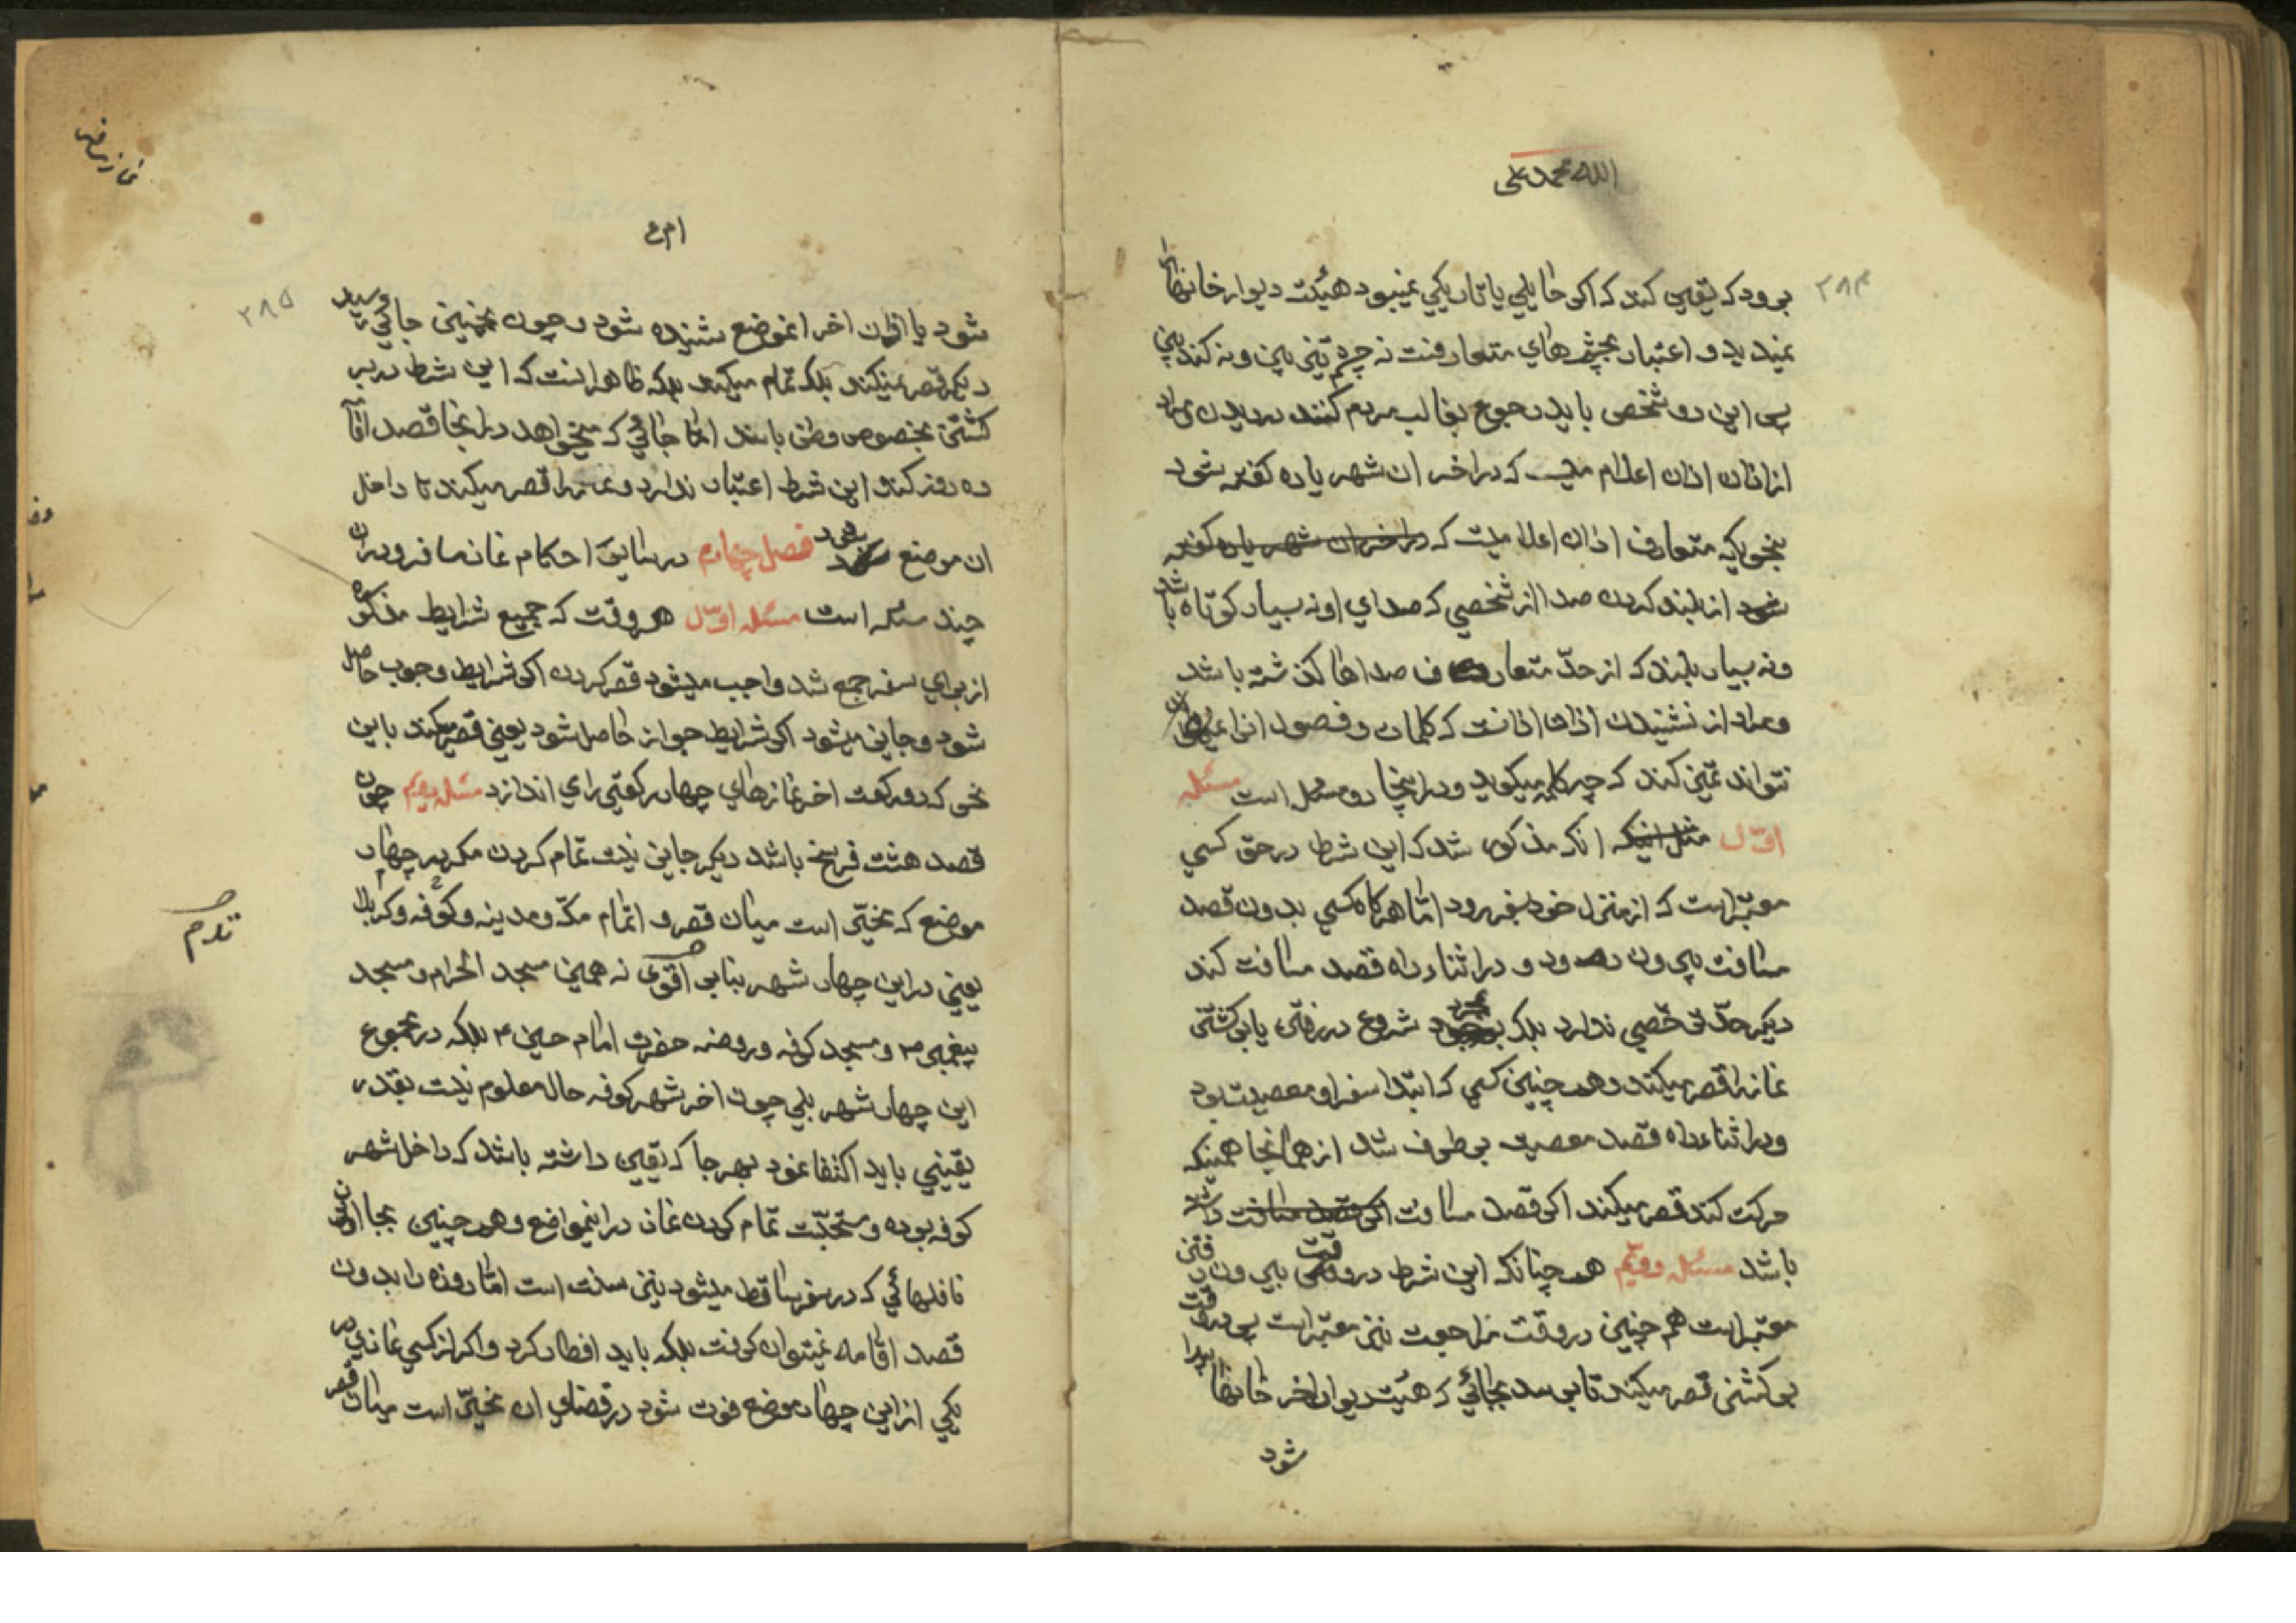 الله محمد علی
۲۸۴
برود که یقین کند که اکر حایلی یا تاریکی نمیبود هیئت دیوار خانها را
نمیدید و اعتبار بچشمهای متعارفست نه چشم تیز بین و نه کند بین
پس این دو شخص باید رجوع بغالب مردم کنند در دیدن و مراد
از اذان اذان اعلام میست که در اخر ان شهر یا ده کفته شود
بنحویکه متعارف اذان اعلا میست که در اخر ان شهر یا ده کفته
شود از بلند کردن صدا از شخصی که صدای او نه بسیار کوتاه باشد
ونه بسیار بلند که از حد متعارف صداها کذشته باشد
و مراد از نشنیدن اذان اذانست که کلمات و فصول انرا
نتواند تمیز کند که چه کلمه میکوید و در اینجا دو مسئله است مسئله
اول مثل اینکه انکه مذکور شد که این شرط در حق کسی
معتبر است که از منزل خود بسفر رود اما هرکاه کسی بدون قصد
مسافت بیرون رود و در اثناء راه قصد مسافت کند
دیکر حد ترخصی ندارد بلکه بمجرد شروع در رفتن یا برکشتن
نماز را قصر میکند و همچنین کسی که ابتدا سفر او معصیت بود
و در اثناء راه قصد معصیت برطرف شد از همانجا همینکه
حرکت کند قصر میکند اکر قصد مسافت اکر قصد مسافت داشته
باشد مسئله دویم همچنانکه این شرط در وقت بیرون رفتن
معتبر است همچنین در وقت مراجعت نیز معتبر است پس در وقت
برکشتن قصر میکند تا برسد بجائی که هیئت دیوار اخر خانها پیدا
شود
نماز سفر
ام ع
۲۸۵
شود یا اذان اخر انموضع شنیده شود و چون بچنین جائی رسید
دیکر قصر نمیکند بلکه تمام میکند بلکه ظاهر انست که این شرط در بر
کشتن بخصوص وطن باشد اما جائی که میخواهد در انجا قصد اقامه
ده روز کند این شرط اعتبار ندارد و نماز را قصر میکند تا داخل
ان موضع شود فصل چهارم در سایر احکام نماز مسافر و در ان
چند مسئله است مسئله اول هر وقت که جمیع شرایط مذکوره
از برای سفر جمع شد واجب میشود قصر کردن اکر شرایط وجوب حاصل
شود و جایز میشود اکر شرایط جواز حاصل شود یعنی قصر میکند باین
نحو که دو رکعت اخر نمازهای چهار رکعتی را می اندازد مسئله دویم چون
قصد هشت فرسخ باشد دیکر جایز نیست تمام کردن مکر در چهار
موضع که مخیر است میان قصر و اتمام مکه و مدینه و کوفه و کربلا
یعنی در این چهار شهر بنابر اقوی نه همین مسجد الحرام و مسجد
پیغمبر ص و مسجد کوفه و روضه حضرت امام حسین ع بلکه در مجموع
این چهار شهر بلی چون اخر شهر کوفه حال معلوم نیست بقدر
یقینی باید اکتفا نمود بهر جا که یقین داشته باشد که داخل شهر
کوفه بوده و مستحبست تمام کردن نماز در اینمواضع و همچنین بجا اوردن
نافلهائی که در سفر ساقط میشود نیز سنت است اما روزه را بدون
قصد اقامه نمیتوان کرفت بلکه باید افطار کرد و اکر از کسی نمازی در
یکی از این چهار موضع فوت شود در قضای ان مخیر است میان قصر